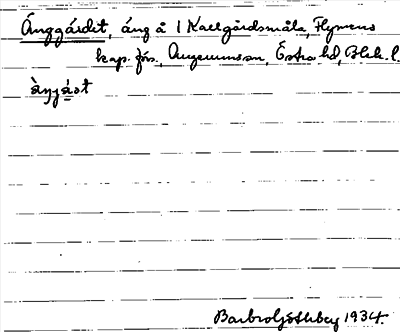 Änggärdet, äng å 1 Kallgårdsmåla, Flymens
kap. förs., Augerums sn, Östra hd, Blek. l.
Barbro Göthberg 1934.